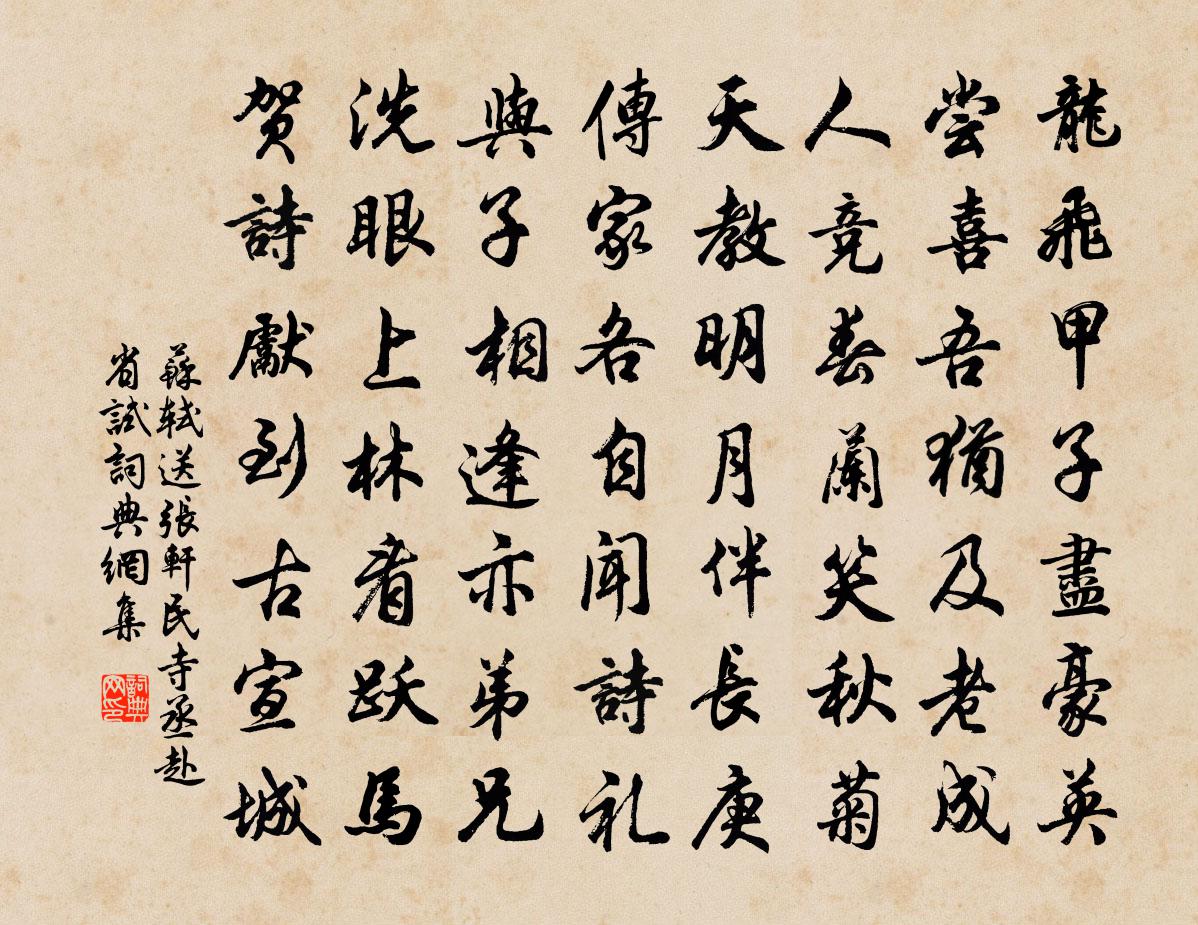 龍飛甲子盡豪英
嘗喜吾猶及老成
人競春蘭笑秋菊
天教明月伴長庚
傳家各自聞詩礼
與子相逢亦弟兄
洗眼上林看躍馬
贺詩獻到古宣城
蘇軾送張軒民寺丞赴
省試詞典網集
詞典网印